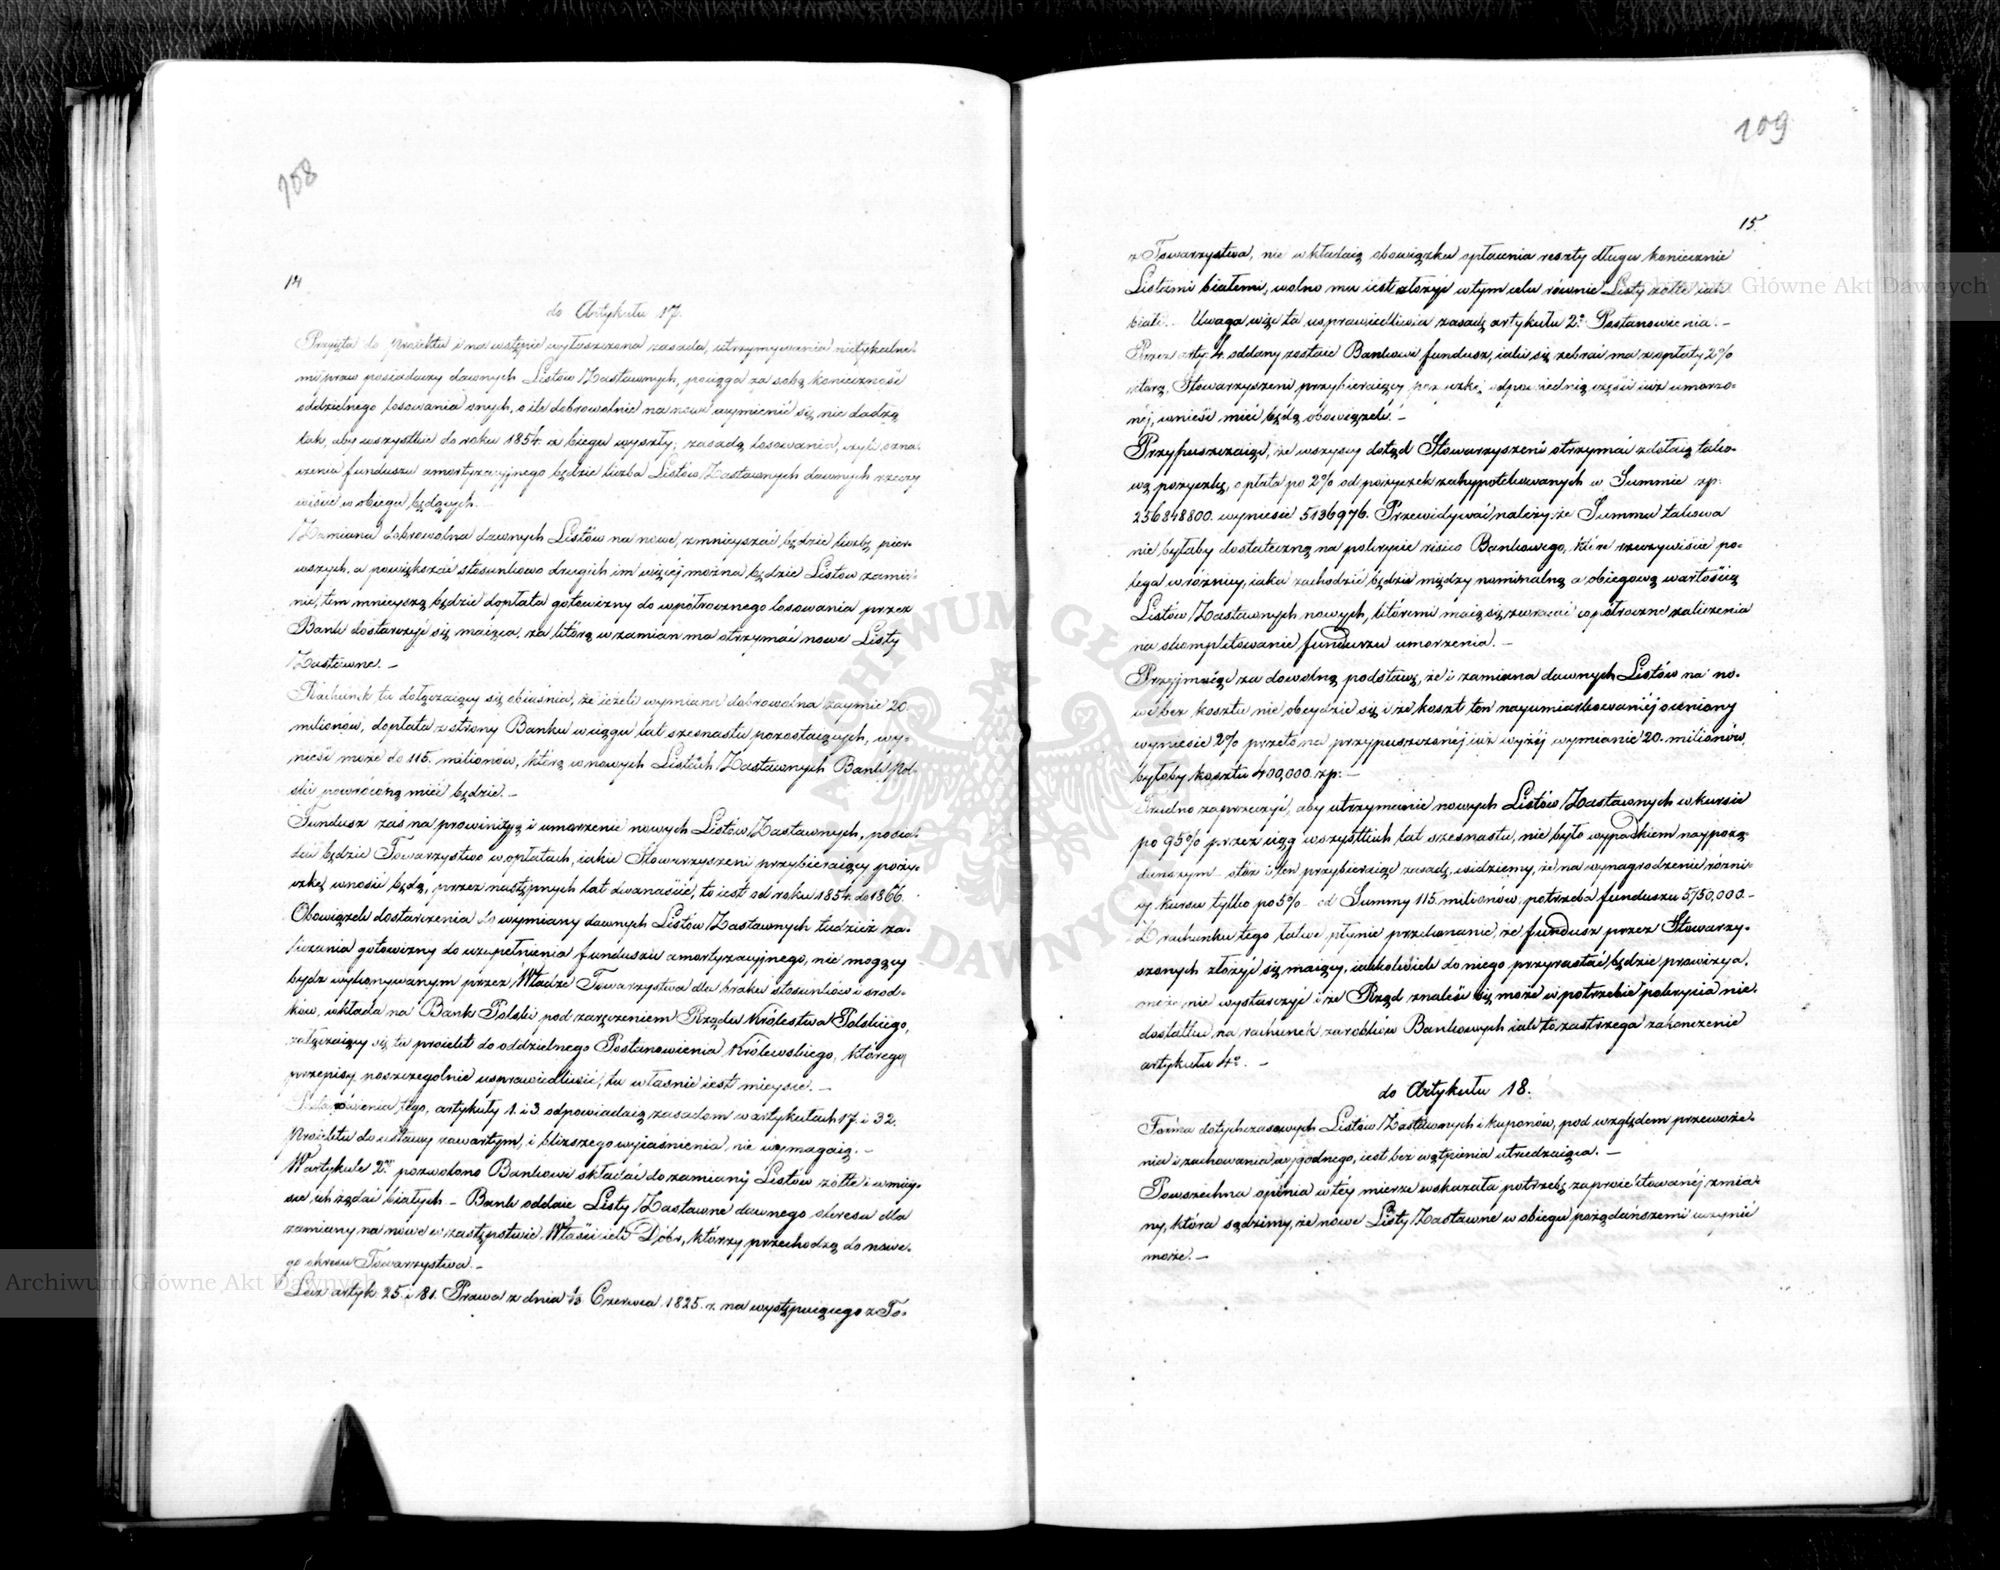 108
14
do Artykułu 17.
Przyięta do Proiektu i na wstępie wyłuszczona zasada, utrzymywania nietykalne-
mi praw posiadaczy dawnych Listów Zastawnych, pociąga za sobą konieczność
oddzielnego losowania onych, o ile dobrowolnie na nowe wymienić się nie dadzą
tak, aby wszystkie do roku 1854. z biegu wyszły; zasadą losowania, czyli ozna-
czenia funduszu amortyzacyjnego będzie liczba Listów Zastawnych dawnych rzeczy
wiście w obiegu będących.
Zamiana dobrowolna dawnych Listów na nowe, zmnieyszać będzie liczbę pier-
wszych, a powiększać stosunkowo drugich im więcej można będzie Listów zamie-
nić, tem mnieyszą będzie dopłata gotowizny do wpółrocznego losowania przez
Bank dostarczyć się maiąca, za którą w zamian ma otrzymać nowe Listy
Zastawne. —
Rachunek tu dołączaiący się obiaśnia, że ieżeli wymiana dobrowolna zaymie 20
milionów, dopłata z strony Banku w ciągu lat szesnastu pozostaiących, wy-
nieść może do 115. milionów, którą w nowych Listach Zastawnych Bank Pol-
ski powróconą mieć będzie. —
Fundusz zaś na prowizyą i umorzenie nowych Listów Zastawnych, posia-
dać będzie Towarzystwo w opłatach, iakie Stowarzyszeni przybieraiący poży-
czkę wnosić będą, przez następnych lat dwanaście, to iest od roku 1854. do 1866.
Obowiązek dostarczenia do wymiany dawnych Listów Zastawnych tudzież za-
liczania gotowizny do uzupełnienia funduszu amortyzacyjnego, nie mogący
bydź wykonywanym przez Władze Towarzystwa dla braku stosunków i środ-
ków, wkłada na Bank Polski pod zaręczeniem Rządu Królestwa Polskiego,
załączaiący się tu proiekt do oddzielnego Postanowienia Królewskiego, którego
przepisy poszczególnie usprawiedliwić, tu właśnie iest mieysce. —
Postanowienia tego, artykuły 1. i 3. odpowiadaią zasadom w artykułach 17. i 32.
Proiektu do ustawy zawartym, i bliższego wyiaśnienia, nie wymagaią. —
W artykule 2. pozwolono Bankowi składać do zamiany Listów żółte i w miey-
sce ich żądać białych — Bank oddaie Listy Zastawne dawnego okresu dla
zamiany na nowe w zastępstwie Właścicieli Dóbr, którzy przechodzą do nowe-
go okresu Towarzystwa. —
Lecz artyk. 25. i 81. Prawa z dnia 1/13 Czerwca 1825. r. na występuiącego z To-
109
15.
z Towarzystwa, nie wkładaią obowiązku opłacenia reszty długu koniecznie
Listami białemi, wolno mu iest złożyć w tym celu równie Listy żółte iak
białe. — Uwaga więc ta usprawiedliwia zasadę artykułu 2º Postanowienia. —
Przez arty: 4. oddany zostaie Bankowi fundusz, iaki się zebrać ma z opłaty 2%
którą Stowarzyszeni przybieraiący pożyczkę odpowiednią części iuż umorzo-
néj, wnieść mieć będą obowiązek. —
Przypuszczaiąc, że wszyscy dotąd Stowarzyszeni otrzymać zdołaią tako-
wą pożyczkę, opłata po 2% od pożyczek zahypotekowanych w Summie zp:
256848800. wyniesie 5136976. Przewidywać należy że Summa takowa
nie byłaby dostateczną na pokrycie risico Bankowego, które rzeczywiście po-
lega w różnicy, iaka zachodzić będzie między nominalną a obiegową wartością
Listów Zastawnych nowych, któremi maią się zwracać wpółroczne zaliczenia
na skompletowanie funduszu umorzenia. —
Przyjmuiąc za dowolną podstawę, że i zamiana dawnych Listów na no-
wé bez kosztu nie obeydzie się i że koszt ten nayumiarkowaniéj oceniony
wyniesie 2% przeto na przypuszczonéj iuż wyżéj wymianie 20. milionów,
byłoby kosztu 400,000. zp: —
Trudno zaprzeczyć, aby utrzymanie nowych Listów Zastawnych w kursie
po 95% przez ciąg wszystkich lat szesnastu, nie było wypadkiem naypożą-
dańszym — otóż i ten przybieraiąc zasadę, widziemy, że na wynagrodzenie różni-
cy kursu tylko po 5% — od Summy 115. milionów, potrzeba funduszu 5,750,000. —
Z rachunku tego łatwo płynie przekonanie, że fundusz przez Stowarzy-
szonych złożyć się maiący, iakkolwiek do niego przyrastać będzie prowizya,
może nie wystarczyć i że Rząd znaleść się może w potrzebie pokrycia nie-
dostatku na rachunek zarobków Bankowych iak to zastrzega zakończenie
artykułu 4º. —
do Artykułu 18.
Forma dotychczasowych Listów Zastawnych i kuponów, pod względem przewoże-
nia i zachowania wygodnego, iest bez wątpienia utrudzaiąca. —
Powszechna opinia w tey mierze wskazała potrzebę zaproiektowanéj zmia-
ny, która sądzimy, że nowe Listy Zastawne w obiegu pożądańszemi uczynić
może. —
Archiwum Główne Akt Dawnych
Archiwum Główne Akt Dawnych
ARCHIWUM GŁÓWNE AKT DAWNYCH